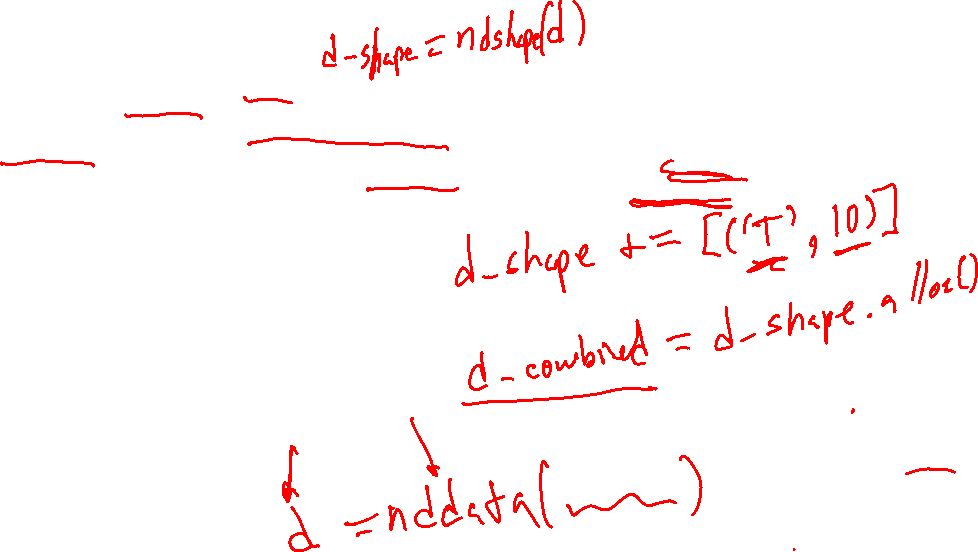 d_shape = ndshape(d)
d_shape += [('T', 10)]
d_combined = d_shape.alloc()
d = nddata(
)